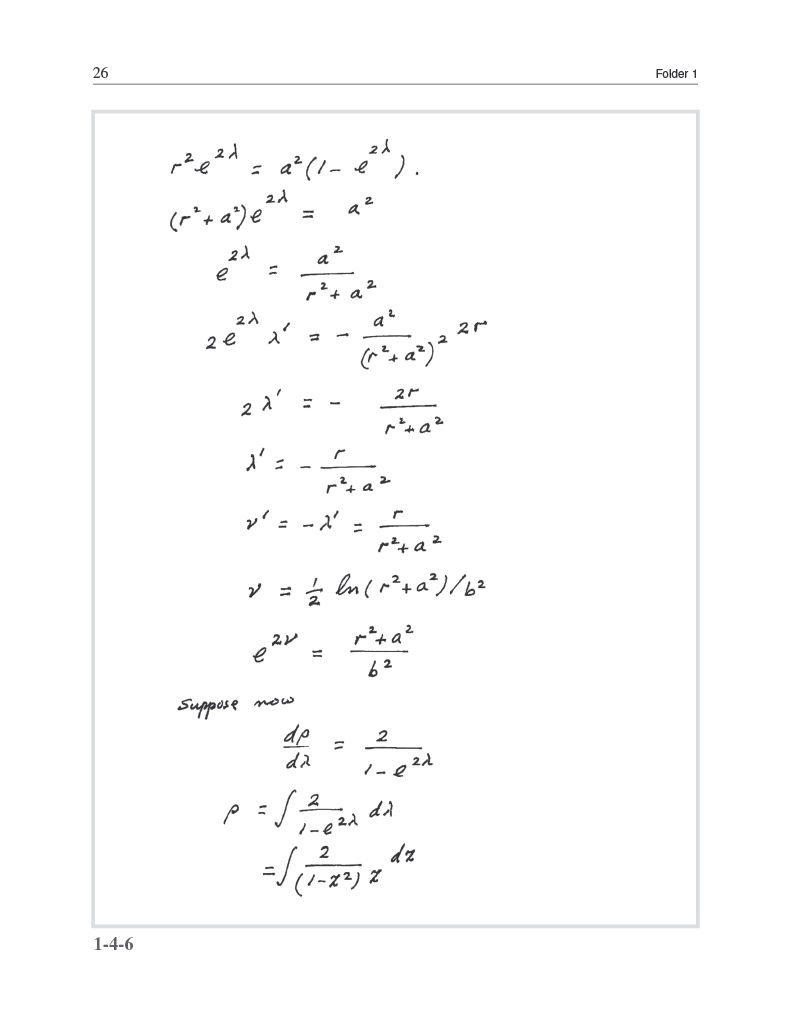 26 Folder 1
r²e^{2λ} = a²(1 - e^{2λ}).
(r² + a²)e^{2λ} = a²
e^{2λ} = a² / (r² + a²)
2e^{2λ} λ' = - a² / (r² + a²)² 2r
2λ' = - 2r / (r² + a²)
λ' = - r / (r² + a²)
ν' = -λ' = r / (r² + a²)
ν = ½ ln(r² + a²)/b²
e^{2ν} = (r² + a²) / b²
Suppose now
dρ/dλ = 2 / (1 - e^{2λ})
ρ = ∫ 2 / (1 - e^{2λ}) dλ
= ∫ 2 / ((1 - z²) z) dz
1-4-6